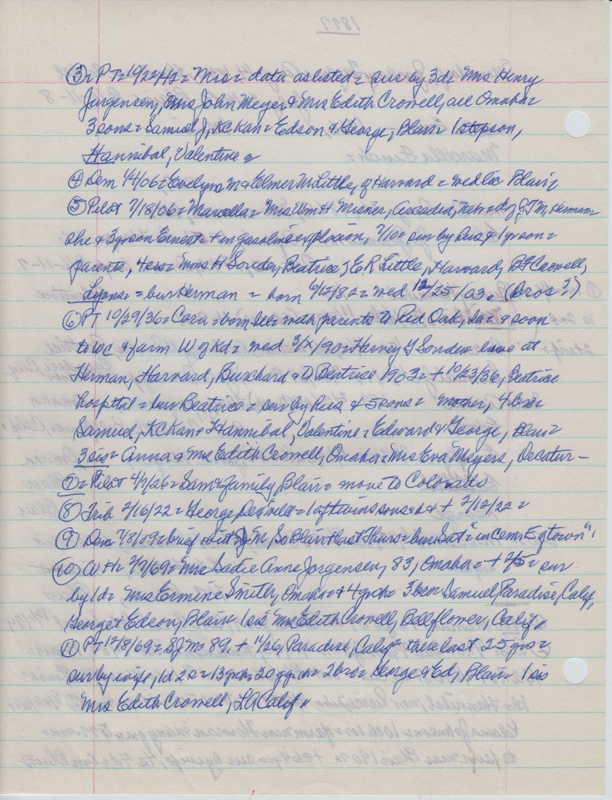 1897
③ = PT = 10/22/42 = Mrs = data as listed = sur by 3d = Mrs Henry
Jorgensen, Mrs John Meyer & Mrs Edith Crowell, all Omaha =
3 sons = Samuel J, KC Kan = Edson & George, Blair 1 stepson,
Hannibal, Valentine =
④ Dem 1/4/06 = Evelyn M & Elmer W Little, of Harvard = wed Blair
⑤ Pilot 7/18/06 = Marcella = Mrs Wm H Misner, Arcadia, Neb = d of J M, Herman
she & 3 yr son Ernest + in gasoline explosion, 7/10 = sur by hus & 1 yr son =
parents, 4 sis = Mrs H Souder, Beatrice; E R Little, Harvard; Crowell,
Lyons = bur Herman = born 6/12/82 = wed 12/25/03. (bros ?)
⑥ PT 10/29/36 = Cora = born Ill = with parents to Red Oak, Ia = & soon
to WC & farm W of Kd = wed /90 = Harvey Souder = lived at
Herman, Harvard, Burchard & to Beatrice 1903 = + 10/23/36, Beatrice
hospital = bur Beatrice = sur by hus & 5 sons = mother, 4 bros =
Samuel, KC Kan & Hannibal, Valentine = Edward & George, Blair
3 sis = Anna & Mrs Edith Crowell, Omaha = Mrs Eva Meyers, Decatur -
⑦ = Pilot 4/7/26 = Sam & family Blair = move to Colorado
⑧ Trib 2/16/22 = George = 1 of twin sons + 2/12/22 =
⑨ Dem 7/8/09 = brief = J M, So Blair + last Thurs = bur Sat = "in cem E of town"
⑩ WH 2/7/69 = Mrs Sadie Anne Jorgensen, 83, Omaha = + 2/5 = sur
by 1d = Mrs Ermine Smith, Omaha = & 4 grch = 3 bros Samuel, Paradise, Calif,
George & Edson, Blair 1 sis Mrs Edith Crowell, Bellflower, Calif "
⑪ PT 12/8/69 = SJM 89, + 11/26, Paradise, Calif = there last 25 yrs =
sur by wife, 1d 2s = 13 grch 20 ggrch = 2 bros = George & Ed, Blair 1 sis
Mrs Edith Crowell, LA Calif "